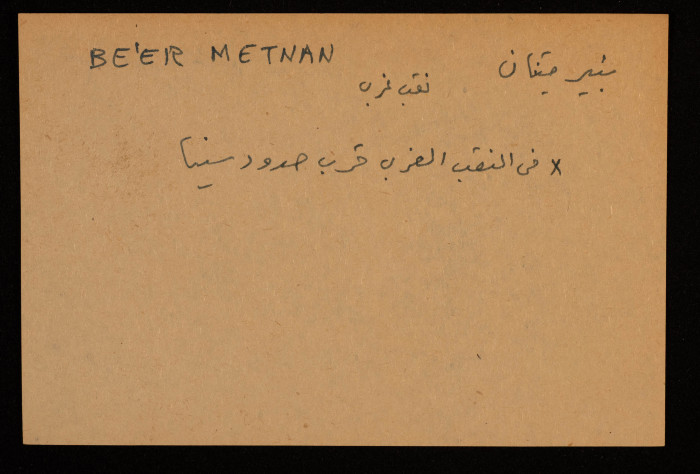 BE'ER METNAN بئير متنان
نقب غرب
x في النقب الغربي قرب حدود سينا